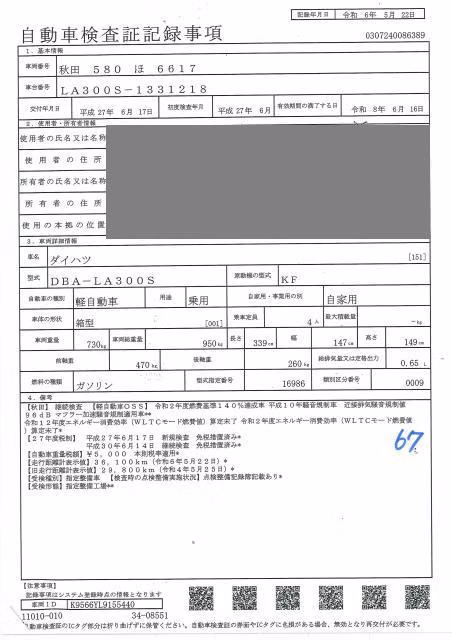 記録年月日 令和 6年 5月 22日
自動車検査証記録事項
0307240086389
1．基本情報
車両番号 秋田 580 ほ 6617
車台番号 LA300S-1331218
交付年月日 平成 27年 6月 初度検査年月 平成 27年 6月 有効期間の満了する日 令和 8年 6月 16日
2．使用者・所有者情報
使用者の氏名又は名称
使用者の住所
所有者の氏名又は名称
所有者の住所
使用の本拠の位置
3．車両詳細情報
車名 ダイハツ [151]
型式 DBA-LA300S 原動機の型式 KF
自動車の種別 軽自動車 用途 乗用 自家用・事業用の別 自家用
車体の形状 箱型 [001] 乗車定員 4人 最大積載量 -kg
車両重量 730kg 車両総重量 950kg 長さ 339cm 幅 147cm 高さ 149cm
前軸重 470kg 後軸重 260kg 総排気量又は定格出力 0.65 L
燃料の種類 ガソリン 型式指定番号 16986 類別区分番号 0009
4．備考
【秋田】 継続検査 【軽自動車OSS】 令和2年度燃費基準140%達成車 平成10年騒音規制車 近接排気騒音規制値
96dB マフラー加速騒音規制適用車**
令和12年度エネルギー消費効率（WLTCモード燃費値）算定未了 令和2年度エネルギー消費効率（WLTCモード燃費値）
算定未了*
【27年度税制】 平成27年6月17日 新規検査 免税措置済み*
平成30年6月14日 継続検査 免税措置済み*
【自動車重量税額】¥5,000 本則税率適用*
【走行距離計表示値】36,100km（令和6年5月22日）*
【旧走行距離計表示値】29,800km（令和4年5月25日）*
【受検種別】指定整備車 【検査時の点検整備実施状況】点検整備記録簿記載あり*
【受検形態】指定整備工場**
67.
【注意事項】
記録事項はシステム登録時点の情報となります
車両ID K9566YL9155440
11010-010 34-08551
自動車検査証のICタグ部分は折り曲げずに保管ください。自動車検査証の券面やICタグに色損がある場合、無効となり再交付が必要です。